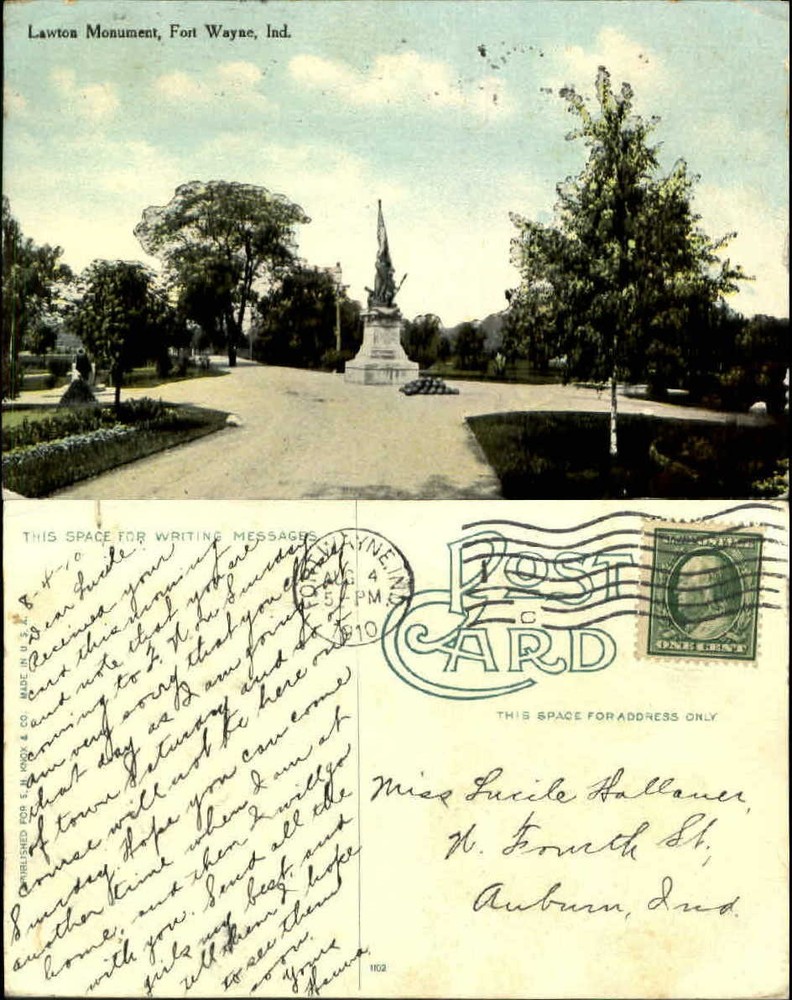 Lawton Monument, Fort Wayne, Ind.
THIS SPACE FOR WRITING MESSAGES
8-4-10
Dear Lucile:
Received your
card this morning
and note that you are
coming to F. W. on Sunday
am very sorry that you chose
that day as I am going out
of town Saturday and so of
course will not be here on
Sunday. Hope you can come
another time when I am at
home, and then I will go
with you. Send all the
girls my best, and
tell them I hope
to see them
soon.
Yours
PUBLISHED FOR S. H. KNOX & CO. MADE IN U.S.A.
FORT WAYNE, IND.
AUG 4
5 PM
1910
C
POST
CARD
ONE CENT
THIS SPACE FOR ADDRESS ONLY
Miss Lucile Hallauer,
N. Fourth St.,
Auburn, Ind.
1102